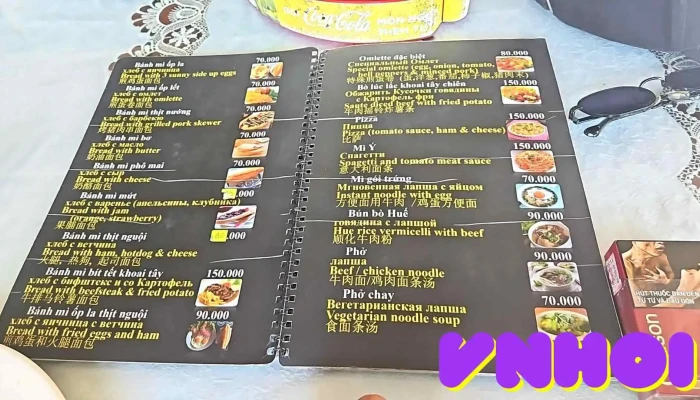 Coca-Cola
MÓN
70.000
Bánh mì ốp la
хлеб с яичница
Bread with 3 sunny side up eggs
煎鸡蛋面包
70.000
Bánh mì ốp lết
хлеб с омлет
Bread with omlette
煎蛋卷面包
70.000
Bánh mì thịt nướng
хлеб с барбекю
Bread with grilled pork skewer
烤猪肉串面包
70.000
Bánh mì bơ
хлеб с масло
Bread with butter
奶油面包
70.000
Bánh mì phô mai
хлеб с сыр
Bread with cheese
奶酪面包
.000
Bánh mì mứt
хлеб с варенье (апельсины, клубника)
Bread with jam
(orange, strawberry)
果酱面包
.000
Bánh mì thịt nguội
хлеб с ветчина
Bread with ham, hotdog & cheese
火腿, 热狗, 起司面包
150.000
Bánh mì bít tết khoai tây
хлеб с бифштекс и со Картофель
Bread with beefsteak & fried potato
牛排马铃薯面包
90.000
Bánh mì ốp la thịt nguội
хлеб с яичница с ветчина
Bread with fried eggs and ham
煎鸡蛋和火腿面包
80.000
Omlette đặc biệt
Специальный Омлет
Special omlette (egg, onion, tomato,
bell peppers & minced pork)
150.000
Bò lúc lắc khoai tây chiên
Обжарить Кусочки говядины
с Картофель фри
Saute diced beef with fried potato
牛肉摇转炸薯条
150.000
Pizza
Пицца
Pizza (tomato sauce, ham & cheese)
比萨
150.000
Mì Ý
Спагетти
Spagetti and tomato meat sauce
意大利面条
70.000
Mì gói trứng
Мгновенная лапша с яйцом
Instant noodle with egg
方便面用牛肉 /鸡蛋方便面
90.000
Bún bò Huế
говядина с лапшой
Hue rice vermicelli with beef
顺化牛肉粉
90.000
Phở
лапша
Beef / chicken noodle
牛肉面/鸡肉面条汤
70.000
Phở chay
Вегетарианская лапша
Vegetarian noodle soup
食面条汤
HÚT THUỐC DẪN ĐẾN
TỪ TỪ VÀ ĐAU ĐỚN
son
VNHOI